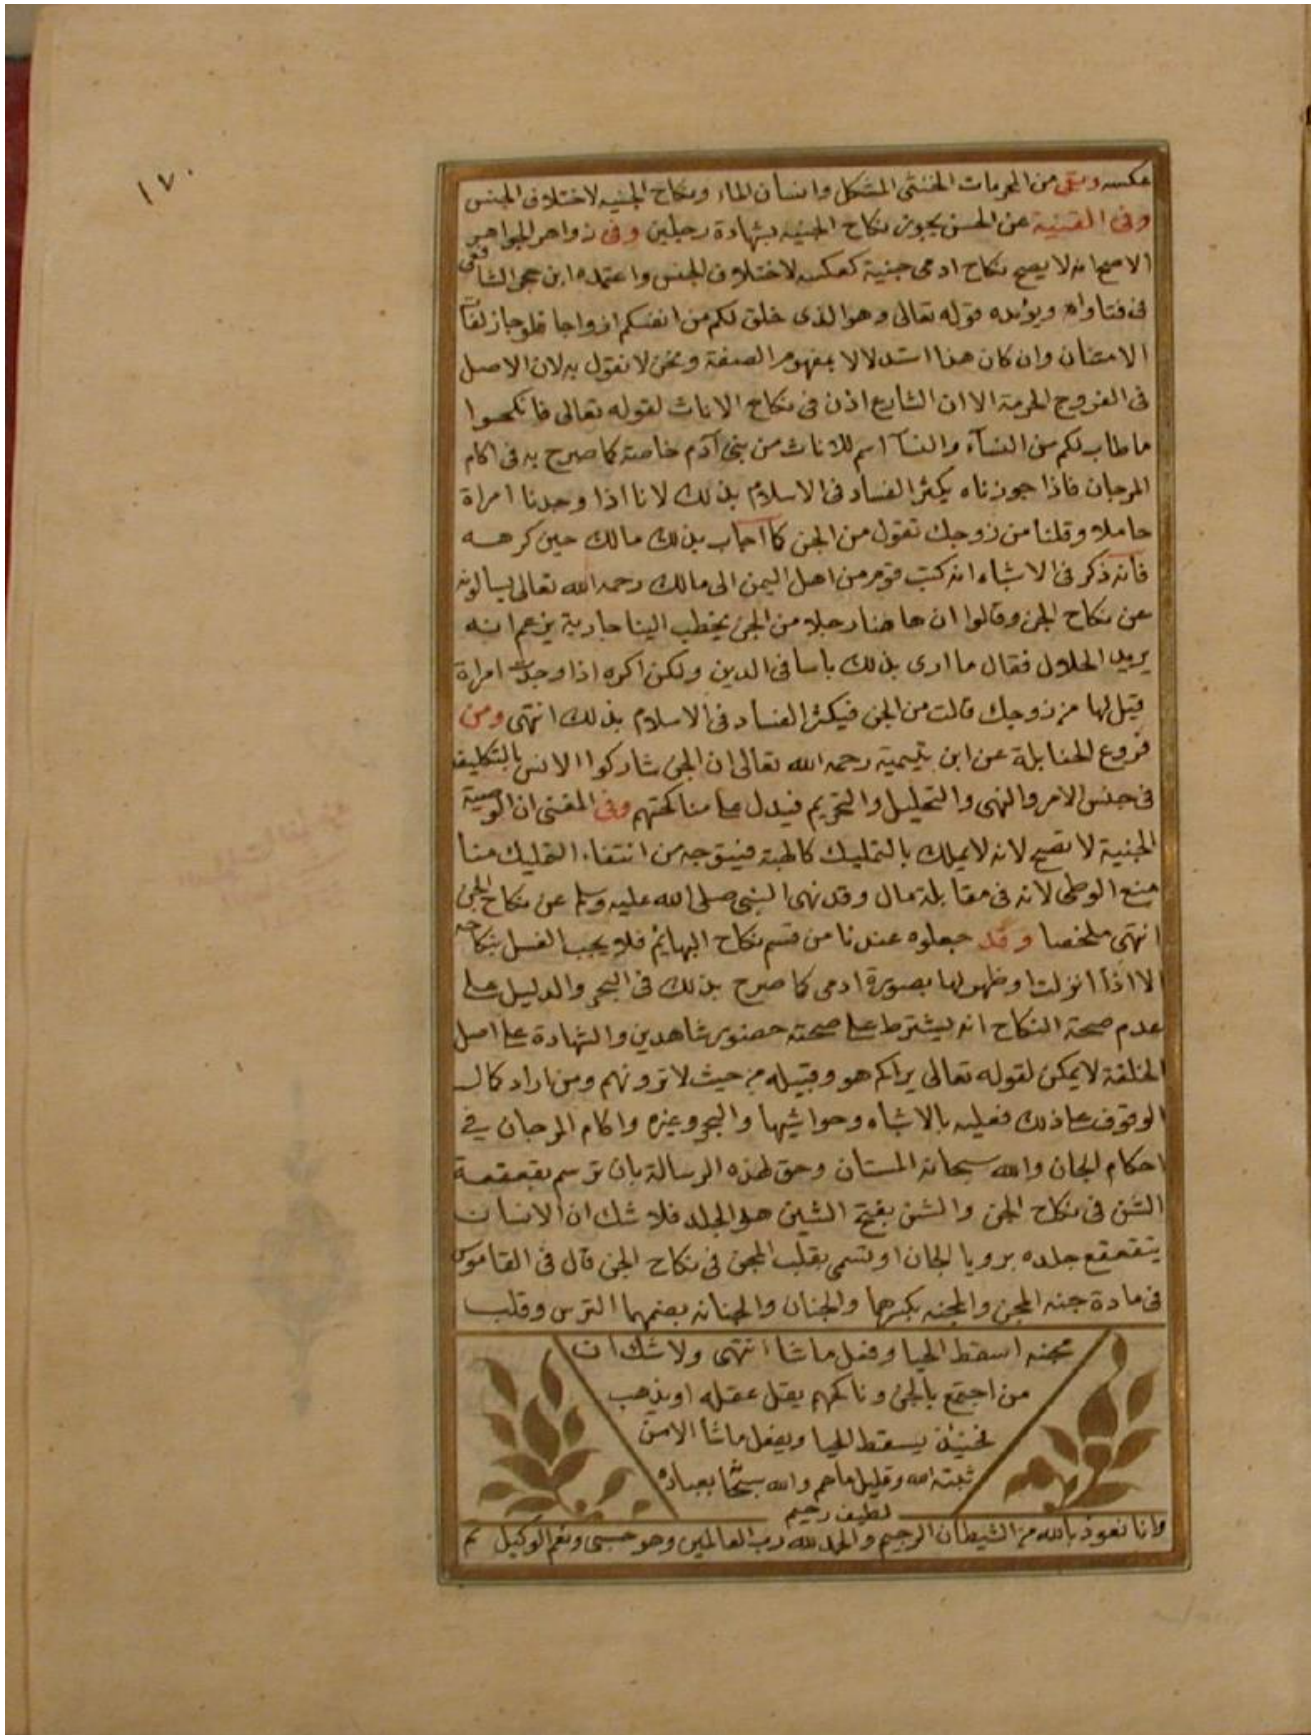 ١٧٠
عكسه وبقى من المحرمات الخنثى المشكل وانسان الماء ونكاح الجنيه لاختلاف الجنس
وفى القنية عن الحسن يجوز نكاح الجنيه بشهادة رجلين وفى زواهر الجواهر
الاصح انه لا يصح نكاح ادمى جنية كعكسه لاختلاف الجنس واعتمده ابن حجر الشافعى
فى فتاواه ويؤيده قوله تعالى وهو الذى خلق لكم من انفسكم ازواجا فلو جاز لفات
الامتنان وان كان هذا استدلالا بمفهوم الصفة ونحن لا نقول به لان الاصل
فى الفروج الحرمة الا ان الشارع اذن فى نكاح الاناث لقوله تعالى فانكحوا
ما طاب لكم من النسآء والنسآ اسم للاناث من بنى آدم خاصة كما صرح به فى اكام
المرجان فاذا جوزناه يكثر الفساد فى الاسلام بذلك لانا اذا وجدنا امراة
حاملا وقلنا من زوجك تقول من الجن كما اجاب بذلك مالك حين كرهه
فانه ذكر فى الاشباه انه كتب قوم من اهل اليمن الى مالك رحمه الله تعالى يسالونه
عن نكاح الجن وقالوا ان هاهنا رجلا من الجن يخطب الينا جارية يزعم انه
يريد الحلال فقال ما ارى بذلك باسا فى الدين ولكن اكره اذا وجدت امراة
قيل لها من زوجك قالت من الجن فيكثر الفساد فى الاسلام بذلك انتهى ومن
فروع الحنابلة عن ابن تيمية رحمه الله تعالى ان الجن شاركوا الانس بالتكليف
فى جنس الامر والنهى والتحليل والتحريم فيدل على مناكحتهم وفى المغنى ان الوصية
للجنية لا تصح لانه لا يملك بالتمليك كالهبة فيتوجه من انتفاء التمليك منا
منع الوطى لانه فى مقابلة مال وقد نهى النبى صلى الله عليه وسلم عن نكاح الجن
انتهى ملخصا وقد جعلوه عندنا من قسم نكاح البهائم فلا يجب الغسل بنكاحه
الا اذا انزلت او ظهر لها بصورة ادمى كما صرح بذلك فى البحر والدليل على
عدم صحة النكاح انه يشترط على صحته حضور شاهدين والشهادة على اصل
الخلقة لا يمكن لقوله تعالى يراكم هو وقبيله من حيث لا ترونهم ومن اراد كمال
الوقوف على ذلك فعليه بالاشباه وحواشيها والبحر وغيره واكام المرجان فى
احكام الجان والله سبحانه المستعان وحق لهذه الرسالة بان ترسم بقعقعة
الشن فى نكاح الجن والشن بفتح الشين هو الجلد فلا شك ان الانسان
يتقعقع جلده برويا الجان او تسمى بقلب المجن فى نكاح الجن قال فى القاموس
فى مادة جنه المجن والمجنه بكسرهما والجنان والجنانه بضمهما الترس وقلب
مجنه اسقط الحيا وفعل ما شا انتهى ولا شك ان
من اجتمع بالجن وناكحهم يقل عقله او يذهب
فحينئذ يسقط الحيا ويفعل ما شا الا من
ثبته الله وقليل ما هم والله سبحانه بعباده
لطيف رحيم
وانا نعوذ بالله من الشيطان الرجيم والحمد لله رب العالمين وهو حسبى ونعم الوكيل تم